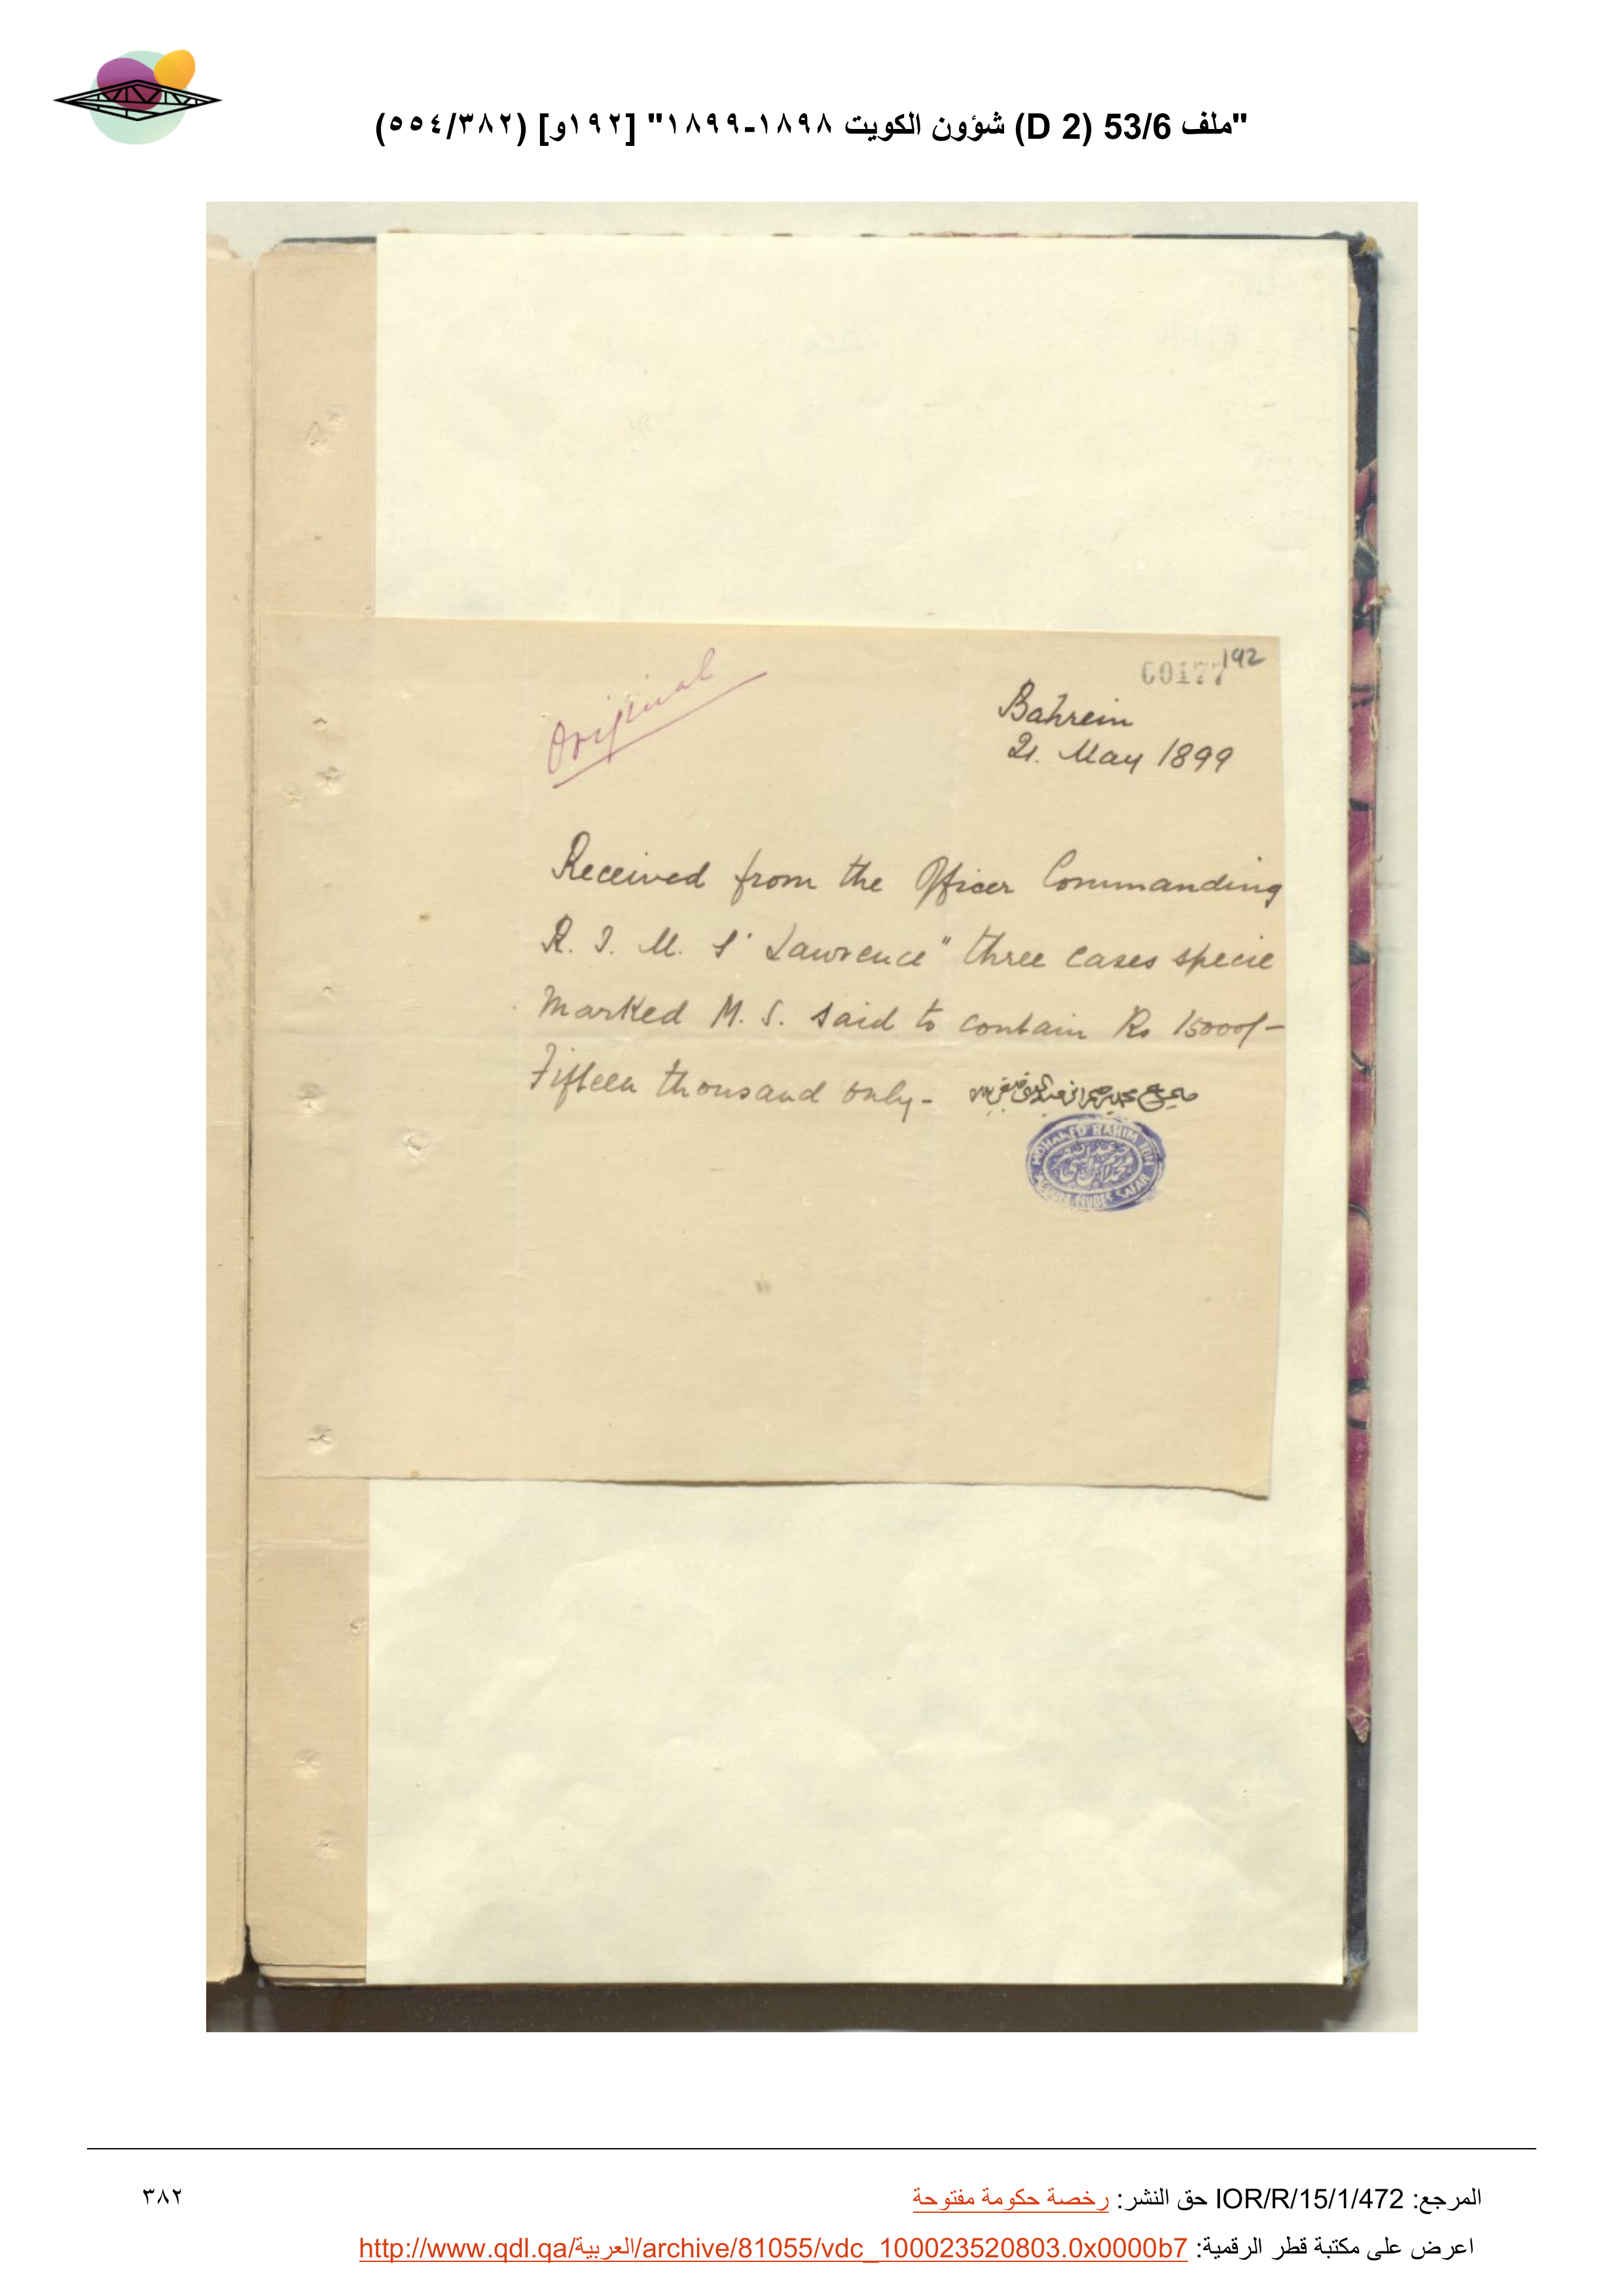 "ملف 53/6 (D 2) شؤون الكويت ١٨٩٨-١٨٩٩" [١٩٢و] (٥٥٤/٣٨٢)
Original
00177 192
Bahrein
21. May 1899
Received from the Officer Commanding
R. I. M. S "Lawrence" three cases specie
Marked M. S. said to contain Rs 15000/-
Fifteen thousand only-
MOHAMED RAHIM BIN
ABDUL NUBEE SAFAR
المرجع: IOR/R/15/1/472 حق النشر: رخصة حكومة مفتوحة
٣٨٢
اعرض على مكتبة قطر الرقمية: http://www.qdl.qa/العربية/archive/81055/vdc_100023520803.0x0000b7